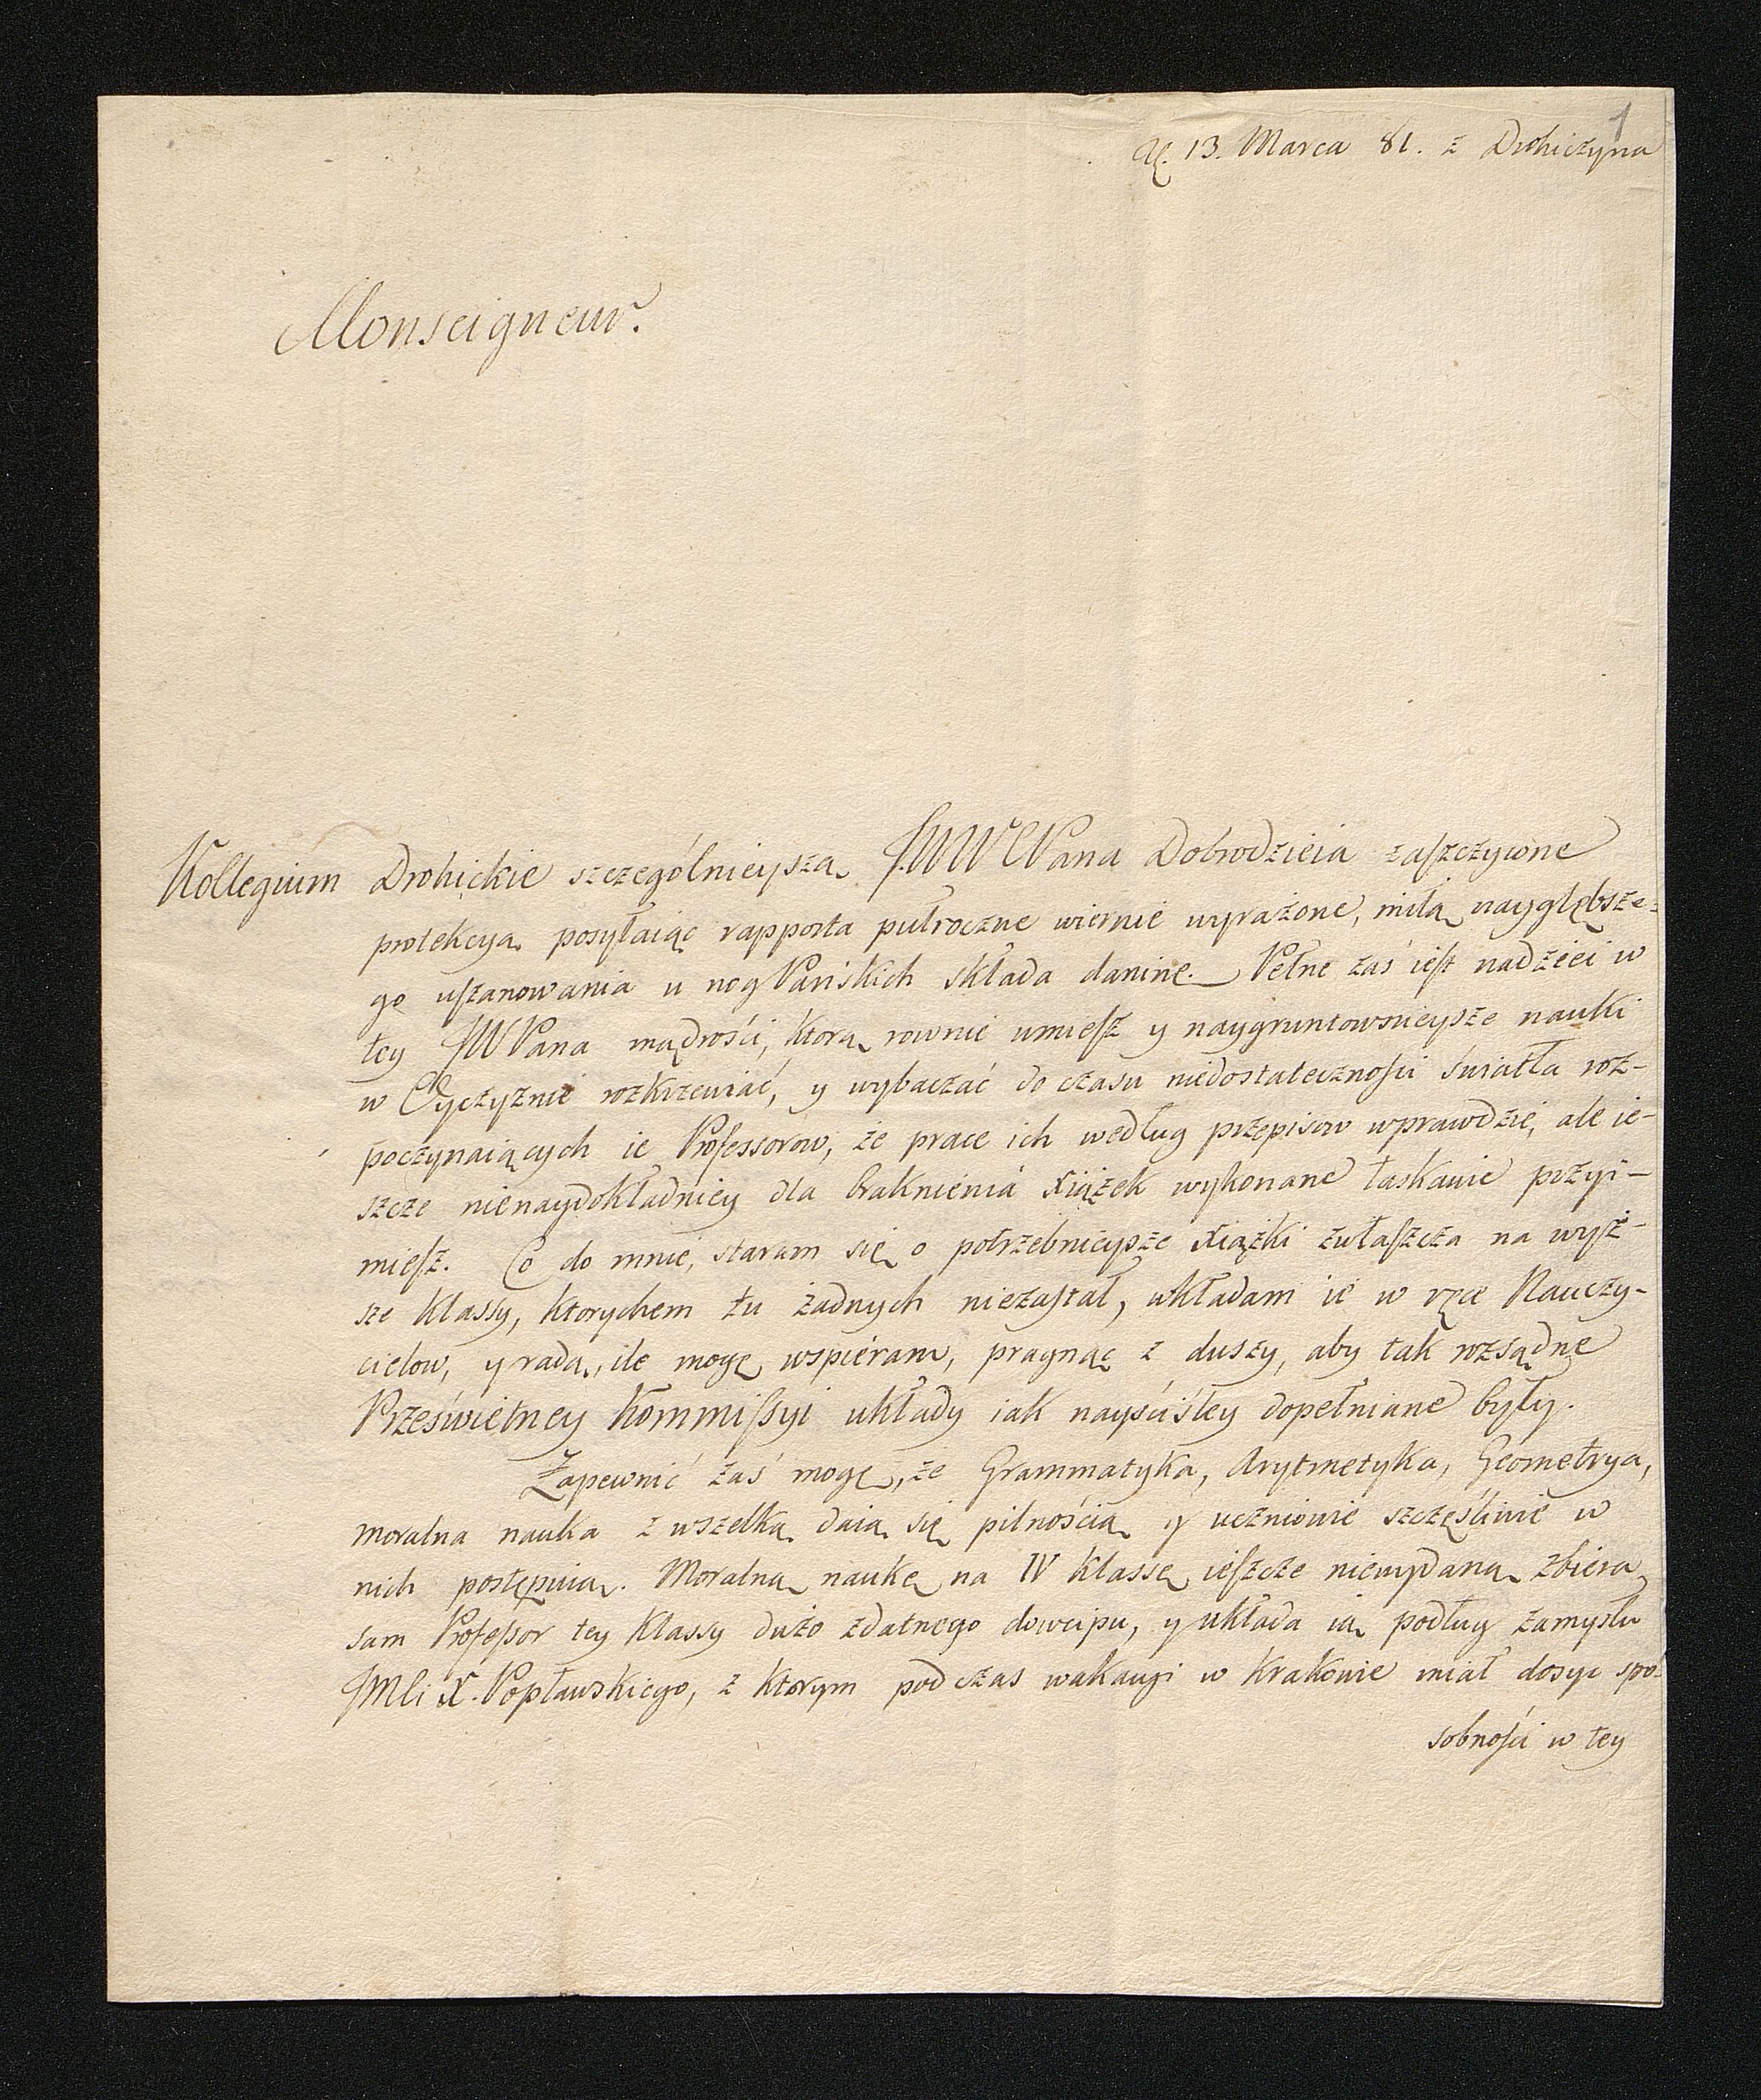 1
13. Marca 81. z Drohiczyna
Monseigneur.
Kollegium Drohickie szczególnieyszą JWWPana Dobrodzieia zaszczycone
protekcyą posyłaiąc rapporta pułroczne wiernie wyrażone, miłą nayglębsze-
go uszanowania u nog Pańskich składa daninę. Pełne zaś iest nadziei w
tey JWPana mądrości, ktorą rownie umiesz y naygruntownieysze nauki
w Oyczyznie rozkrzewiać, y wybaczać do czasu niedostateczności światła roz-
poczynaiących ie Professorow, że prace ich według przepisow wprawdzie, ale ie-
szcze nienaydokładniey dla braknienia xiążek wykonane łaskawie przyi-
miesz. Co do mnie, staram się o potrzebnieysze xiążki zwłaszcza na wyż-
sze klassy, ktorychem tu żadnych niezastał, układam ie w ręce Nauczy-
cielow, y radą, ile mogę, wspieram, pragnąc z duszy, aby tak rozsądne
Prześwietney Kommissyi układy iak nayściśley dopełniane były.
Zapewnić zaś mogę, że Grammatyka, Arytmetyka, Geometrya,
moralna nauka z wszelką daią się pilnością y uczniowie szczęśliwie w
nich postępuią. Moralną naukę na IV klassę ieszcze niewydaną zbiera
sam Professor tey klassy dużo zdatnego dowcipu, y układa ią podług zamysłu
JMCi X. Popławskiego, z ktorym podczas wakacyi w Krakowie miał dosyc spo-
sobności w tey